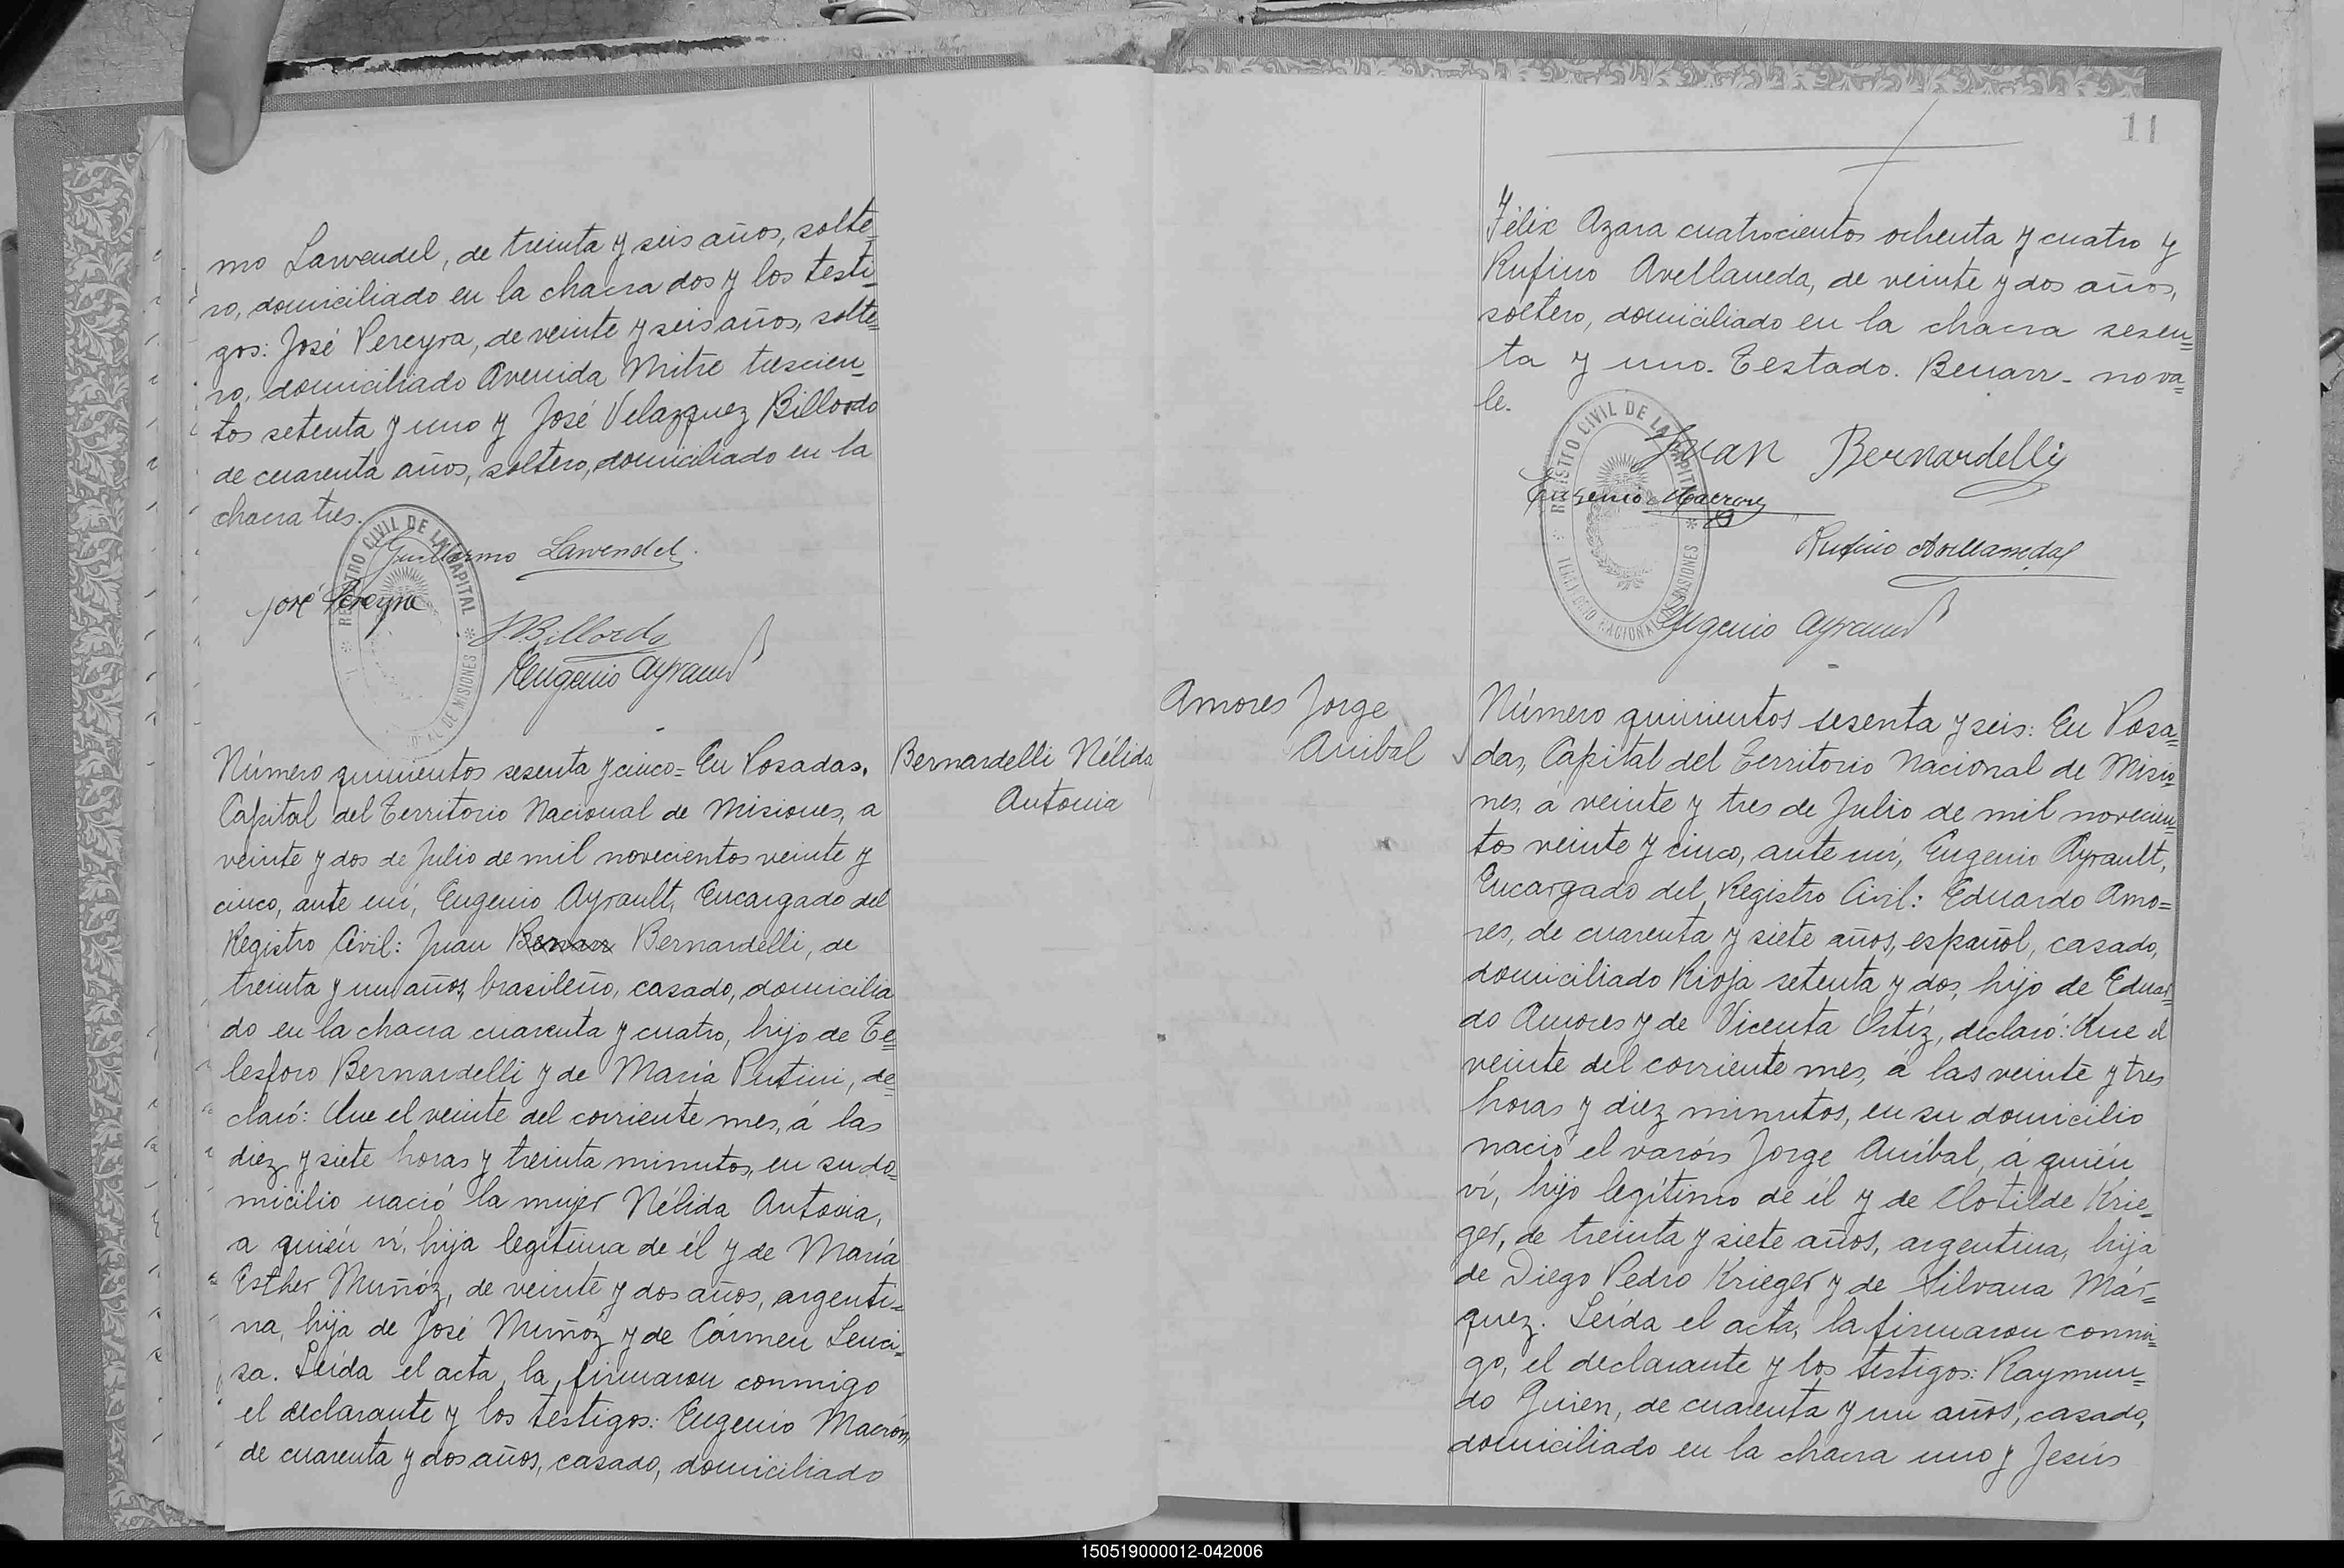 mo Lawendel, de treinta y seis años, solte=
ro, domiciliado en la chacra dos y los testi=
gos: José Pereyra, de veinte y seis años, solte=
ro, domiciliado Avenida Mitre trescien=
tos setenta y uno y José Velazquez Billordo
de cuarenta años, soltero, domiciliado en la
chacra tres.
REGISTRO CIVIL DE LA CAPITAL
DE MISIONES
Guillermo Lawendel.
José Pereyra
Billordo
Eugenio Ayrault
Número quinientos sesenta y cinco= En Posadas,
Capital del Territorio Nacional de Misiones, a
veinte y dos de Julio de mil novecientos veinte y
cinco, ante mí, Eugenio Ayrault, Encargado del
Registro Civil: Juan Benarr Bernardelli, de
treinta y un años, brasileño, casado, domicilia
do en la chacra cuarenta y cuatro, hijo de Te=
lesforo Bernardelli y de María Putini, de=
claró: Que el veinte del corriente mes, á las
diez y siete horas y treinta minutos, en su do=
micilio nació la mujer Nélida Antonia,
a quién ví, hija legítima de él y de María
Esther Muñóz, de veinte y dos años, argenti=
na, hija de José Muñóz y de Cármen Lenci=
sa. Leída el acta, la firmaron conmigo
el declarante y los testigos: Eugenio Macrón,
de cuarenta y dos años, casado, domiciliado
Bernardelli Nélida
Antonia
11
Félix Azara cuatrocientos ochenta y cuatro y
Rufino Avellaneda, de veinte y dos años,
soltero, domiciliado en la chacra sesen=
ta y uno. Testado. Benarr - no va=
le.
REGISTRO CIVIL DE LA CAPITAL
TERRITORIO NACIONAL DE MISIONES
Juan Bernardelli
Eugenio Macron
Rufino Avellaneda
Eugenio Ayrault
Amores Jorge
Anibal
Número quinientos sesenta y seis: En Posa=
das, Capital del Territorio Nacional de Misio=
nes, á veinte y tres de Julio de mil novecien=
tos veinte y cinco, ante mí, Eugenio Ayrault,
Encargado del Registro Civil: Eduardo Amo=
res, de cuarenta y siete años, español, casado,
domiciliado Rioja setenta y dos, hijo de Eduar=
do Amores y de Vicenta Ortíz, declaró: Que el
veinte del corriente mes, á las veinte y tres
horas y diez minutos, en su domicilio
nació el varón Jorge Aníbal, á quién
ví, hijo legítimo de él y de Clotilde Krie=
ger, de treinta y siete años, argentina, hija
de Diego Pedro Krieger y de Silvana Már=
quez. Leída el acta, la firmaron conmi=
go, el declarante y los testigos: Raymun=
do Guien, de cuarenta y un años, casado,
domiciliado en la chacra uno y Jesús
150519000012-042006